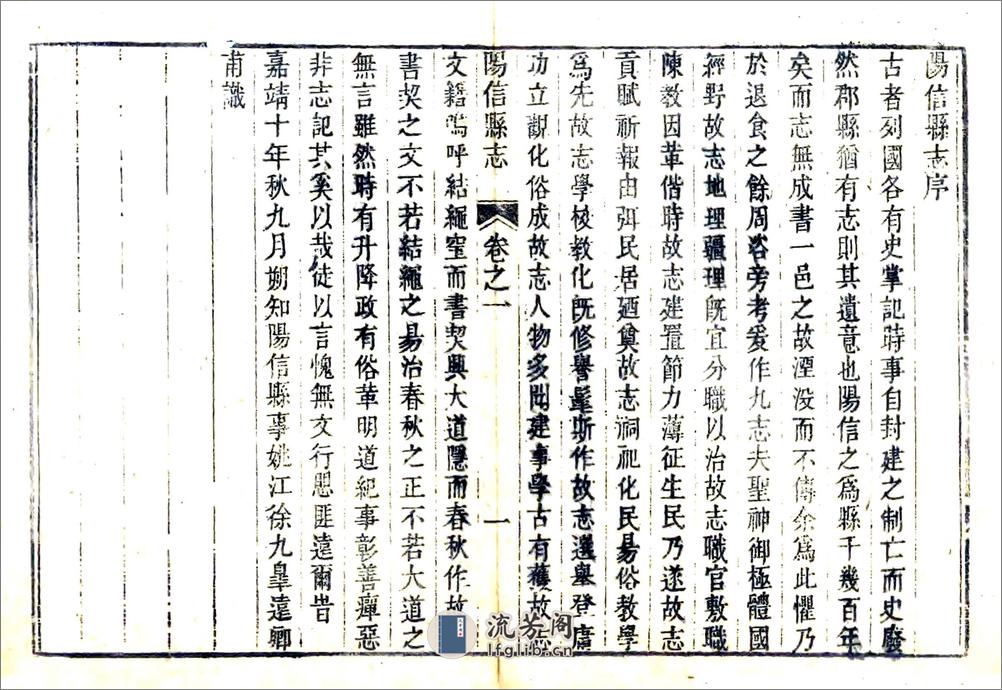 陽信縣志序
古者列國各有史掌記時事自封建之制亡而史廢
然郡縣猶有志則其遺意也陽信之為縣千幾百年
矣而志無成書一邑之故湮没而不傳余為此懼乃
於退食之餘周咨旁考爰作九志夫聖神御極體國
經野故志地理疆理既宜分職以治故志職官敷職
陳教因革偕時故志建置節力薄征生民乃遂故志
貢賦祈報由弭民居廼奠故志祠祀化民易俗教學
為先故志學校教化既修譽髦斯作故志選舉登庸
功立觀化俗成故志人物多聞建事學古有獲故志
陽信縣志 卷之一 一
文籍嗚呼結繩窒而書契興大道隱而春秋作故
書契之文不若結繩之易治春秋之正不若大道之
無言雖然時有升降政有俗革明道紀事彰善癉惡
非志記其奚以哉徒以言愧無文行思匪遠爾昔
嘉靖十年秋九月朔知陽信縣事姚江徐九臯遠卿
甫識
流芳阁
lfglib.cn